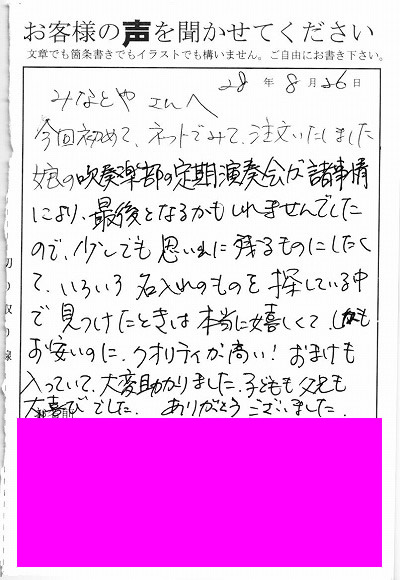 お客様の声を聞かせてください
文章でも箇条書きでもイラストでも構いません。ご自由にお書き下さい。
28年8月26日
みなとや さんへ
今回初めて、ネットでみて、注文いたしました
娘の吹奏楽部の定期演奏会が諸事情
により、最後となるかもしれませんでした
ので、少しでも思い出に残るものにしたく
て、いろいろ名入れのものを探している中
で見つけたときは本当に嬉しくて しかも
お安いのに、クオリティが高い！おまけも
入っていて、大変助かりました。子どもも父兄も
大喜びでした。 ありがとうございました。
切り取り線